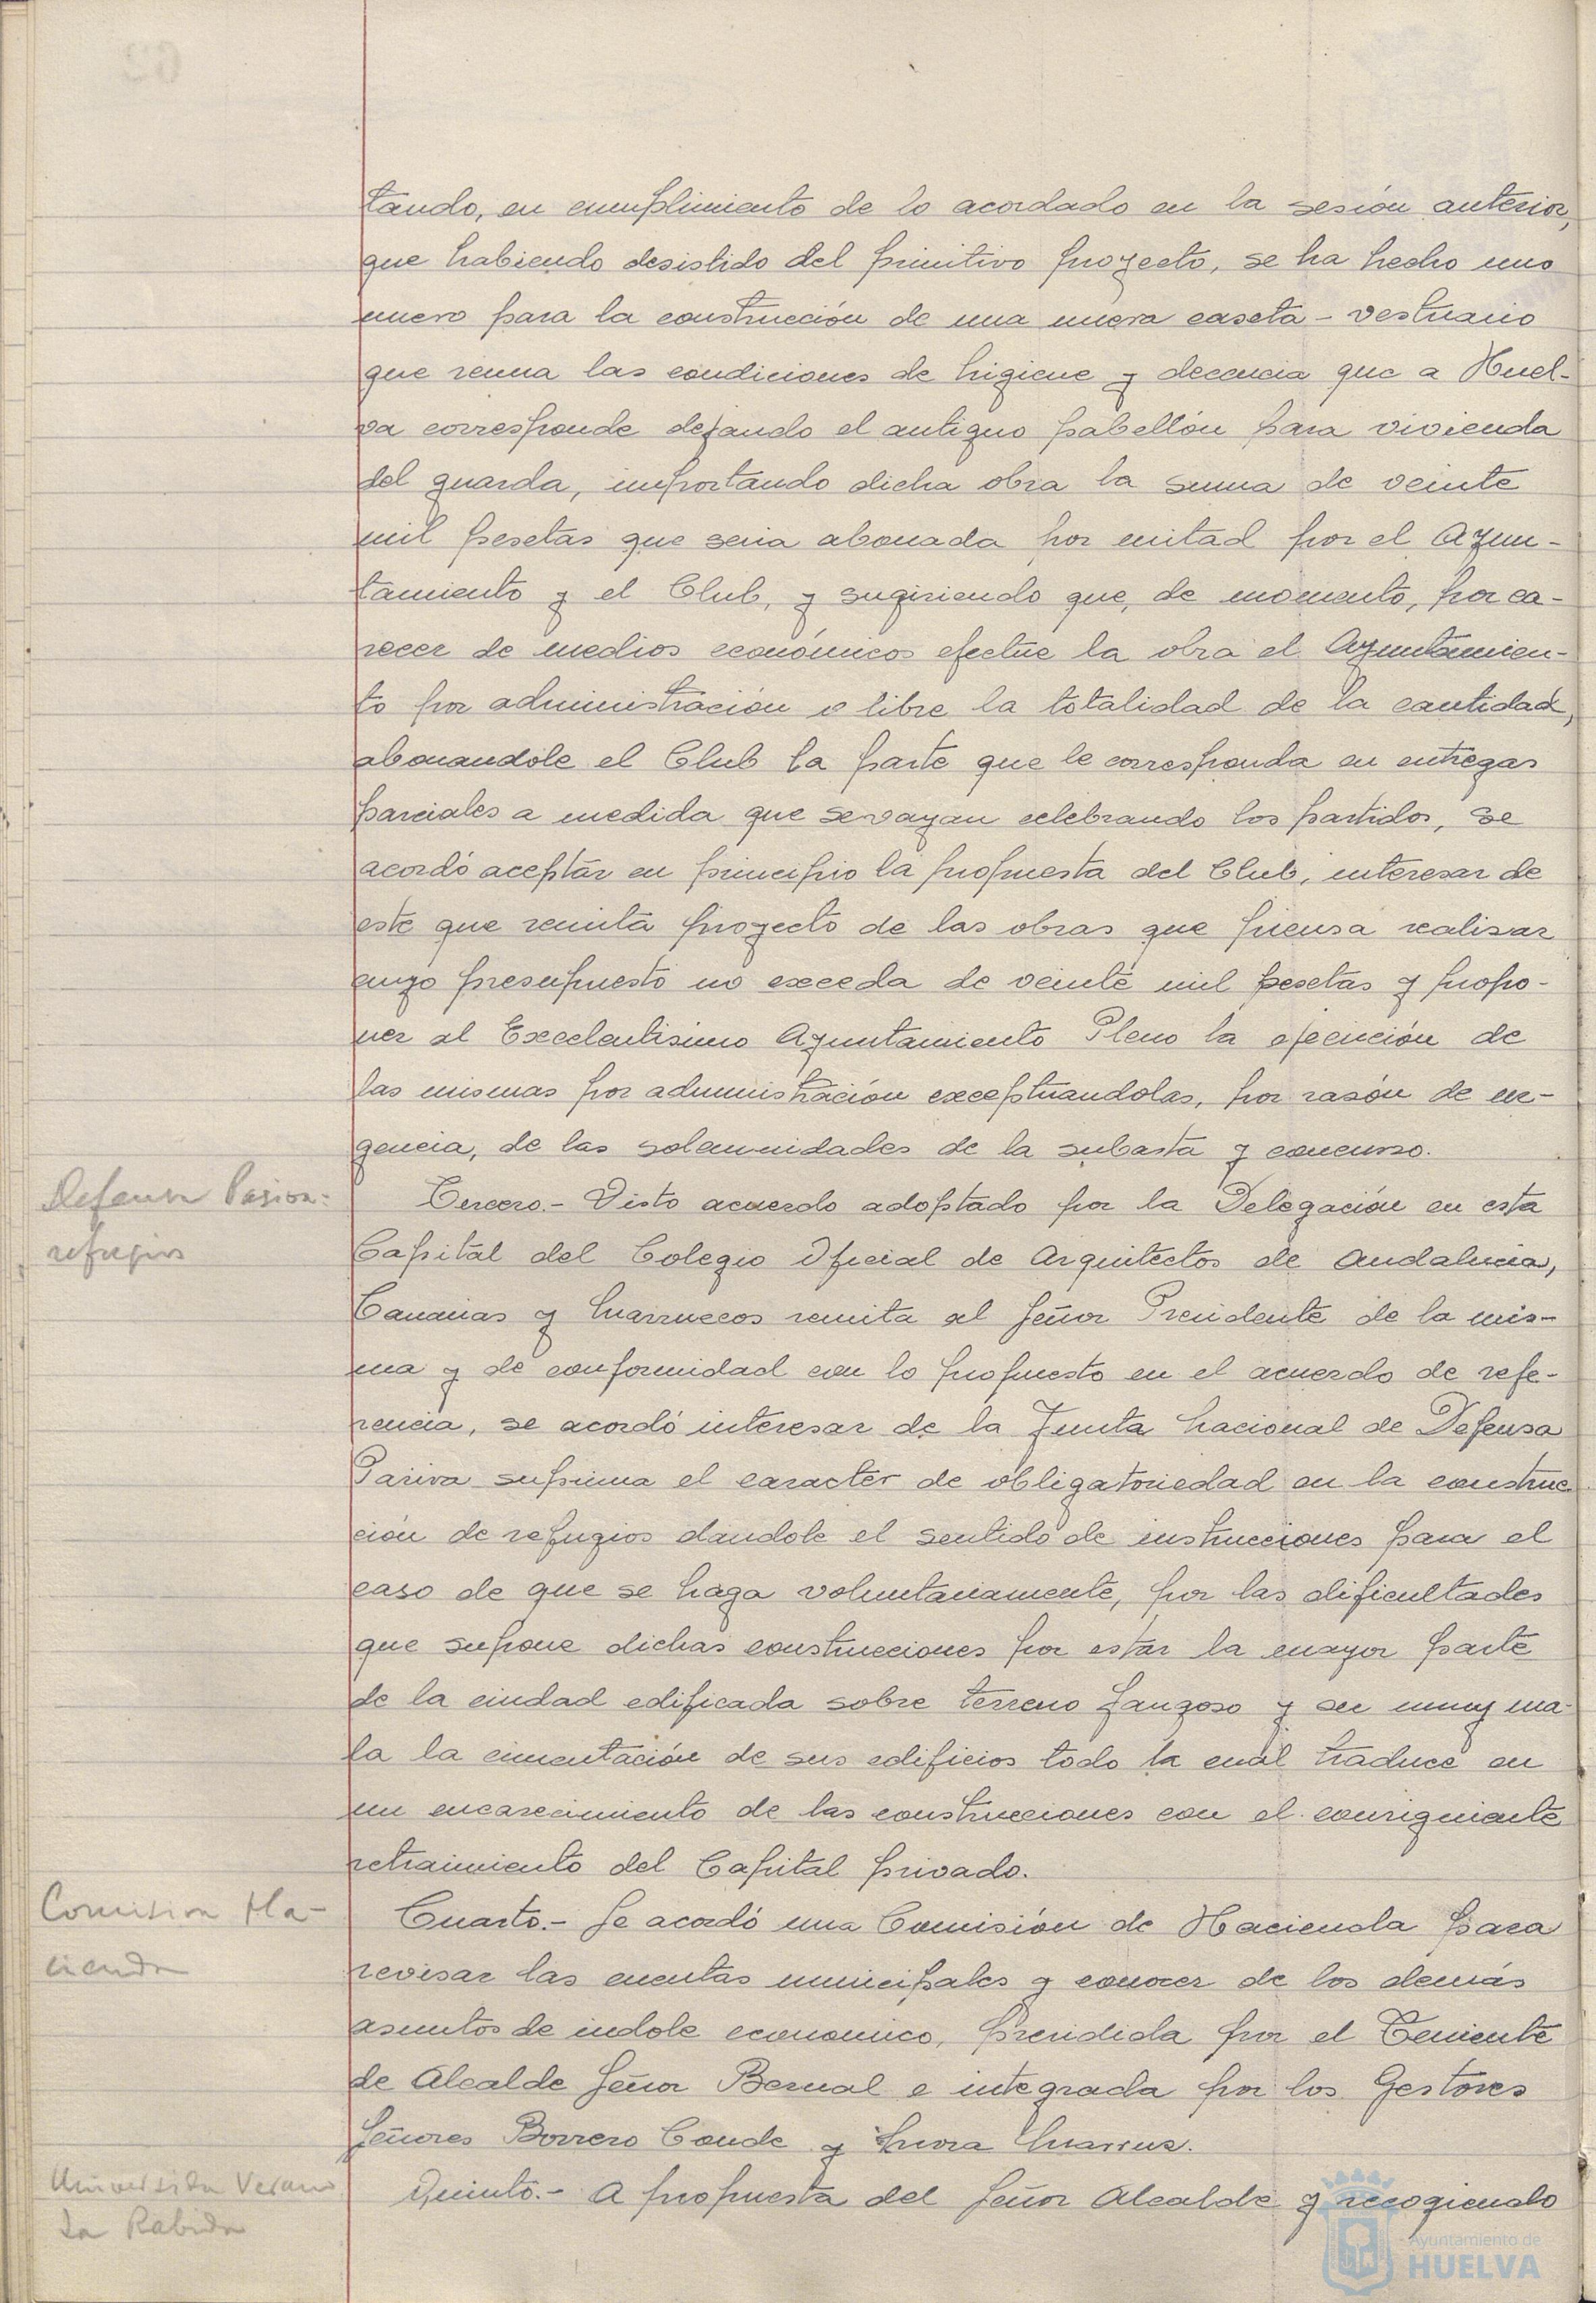 tando, en cumplimiento de lo acordado en la sesión anterior,
que habiendo desistido del primitivo proyecto, se ha hecho uno
nuevo para la construcción de una nueva caseta - vestuario
que reuna las condiciones de higiene y decencia que a Huel-
va corresponde dejando el antiguo pabellón para vivienda
del guarda, importando dicha obra la suma de veinte
mil pesetas que seria abonada por mitad por el Ayun-
tamiento y el Club, y sugiriendo que, de momento, por ca-
recer de medios económicos efectúe la obra el Ayuntamien-
to por administración o libre la totalidad de la cantidad,
abonandole el Club la parte que le corresponda en entregas
parciales a medida que se vayan celebrando los partidos, se
acordó aceptar en principio la propuesta del Club, interesar de
este que remita proyecto de las obras que piensa realisar
cuyo presupuesto no exceda de veinte mil pesetas y propo-
ner al Excelentisimo Ayuntamiento Pleno la ejecución de
las mismas por administración exceptuandolas, por rasón de ur-
gencia, de las solemnidades de la subasta y concurso.
Defensa Pasiva:
refugios
Tercero.- Visto acuerdo adoptado por la Delegación en esta
Capital del Colegio Oficial de Arquitectos de Andalucia,
Canarias y Marruecos remita al Señor Presidente de la mis-
ma y de conformidad con lo propuesto en el acuerdo de refe-
rencia, se acordó interesar de la Junta Nacional de Defensa
Pasiva suprima el caracter de obligatoriedad en la construc
ción de refugios dándole el sentido de instrucciones para el
caso de que se haga voluntariamente, por las dificultades
que supone dichas construcciones por estar la mayor parte
de la ciudad edificada sobre terreno fangoso y ser muy ma-
la la cimentación de sus edificios todo la cual traduce en
un encarecimiento de las construcciones con el consiguiente
retraimiento del Capital privado.
Comision Ha-
cienda
Cuarto.- Se acordó una Comisión de Hacienda para
revisar las cuentas municipales y conocer de los demás
asuntos de indole economico, presidida por el Teniente
de Alcalde Señor Bernal e integrada por los Gestores
Señores Borrero Conde y Mora
Universida Verano
La Rabida
Quinto.- A propuesta del Señor Alcalde y recogiendo
Ayuntamiento de
HUELVA